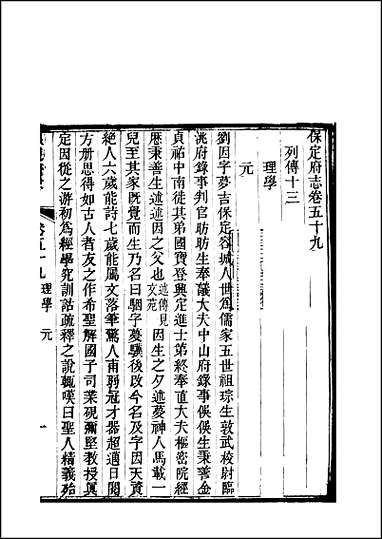 保定府志卷五十九
列傳十三
理學
元
劉因字夢吉保定容城人世爲儒家五世祖琮生敦武校尉臨
洮府錄事判官昉昉生奉議大夫中山府錄事俁俁生秉善金
貞祐中南徙其弟國寶登興定進士第終奉直大夫樞密院經
歷秉善生述述因之父也述傳見文苑因生之夕述夢神人馬載一
兒至其家旣覺而生乃名曰駰字夢驥後改今名及字因天資
絕人六歲能詩七歲能屬文落筆驚人甫弱冠才器超邁日閱
方册思得如古人者友之作希聖解國子司業硯彌堅敎授眞
定因從之游初爲經學究訓詁疏釋之說輒嘆曰聖人精義殆
卷五十九 理學 元
一